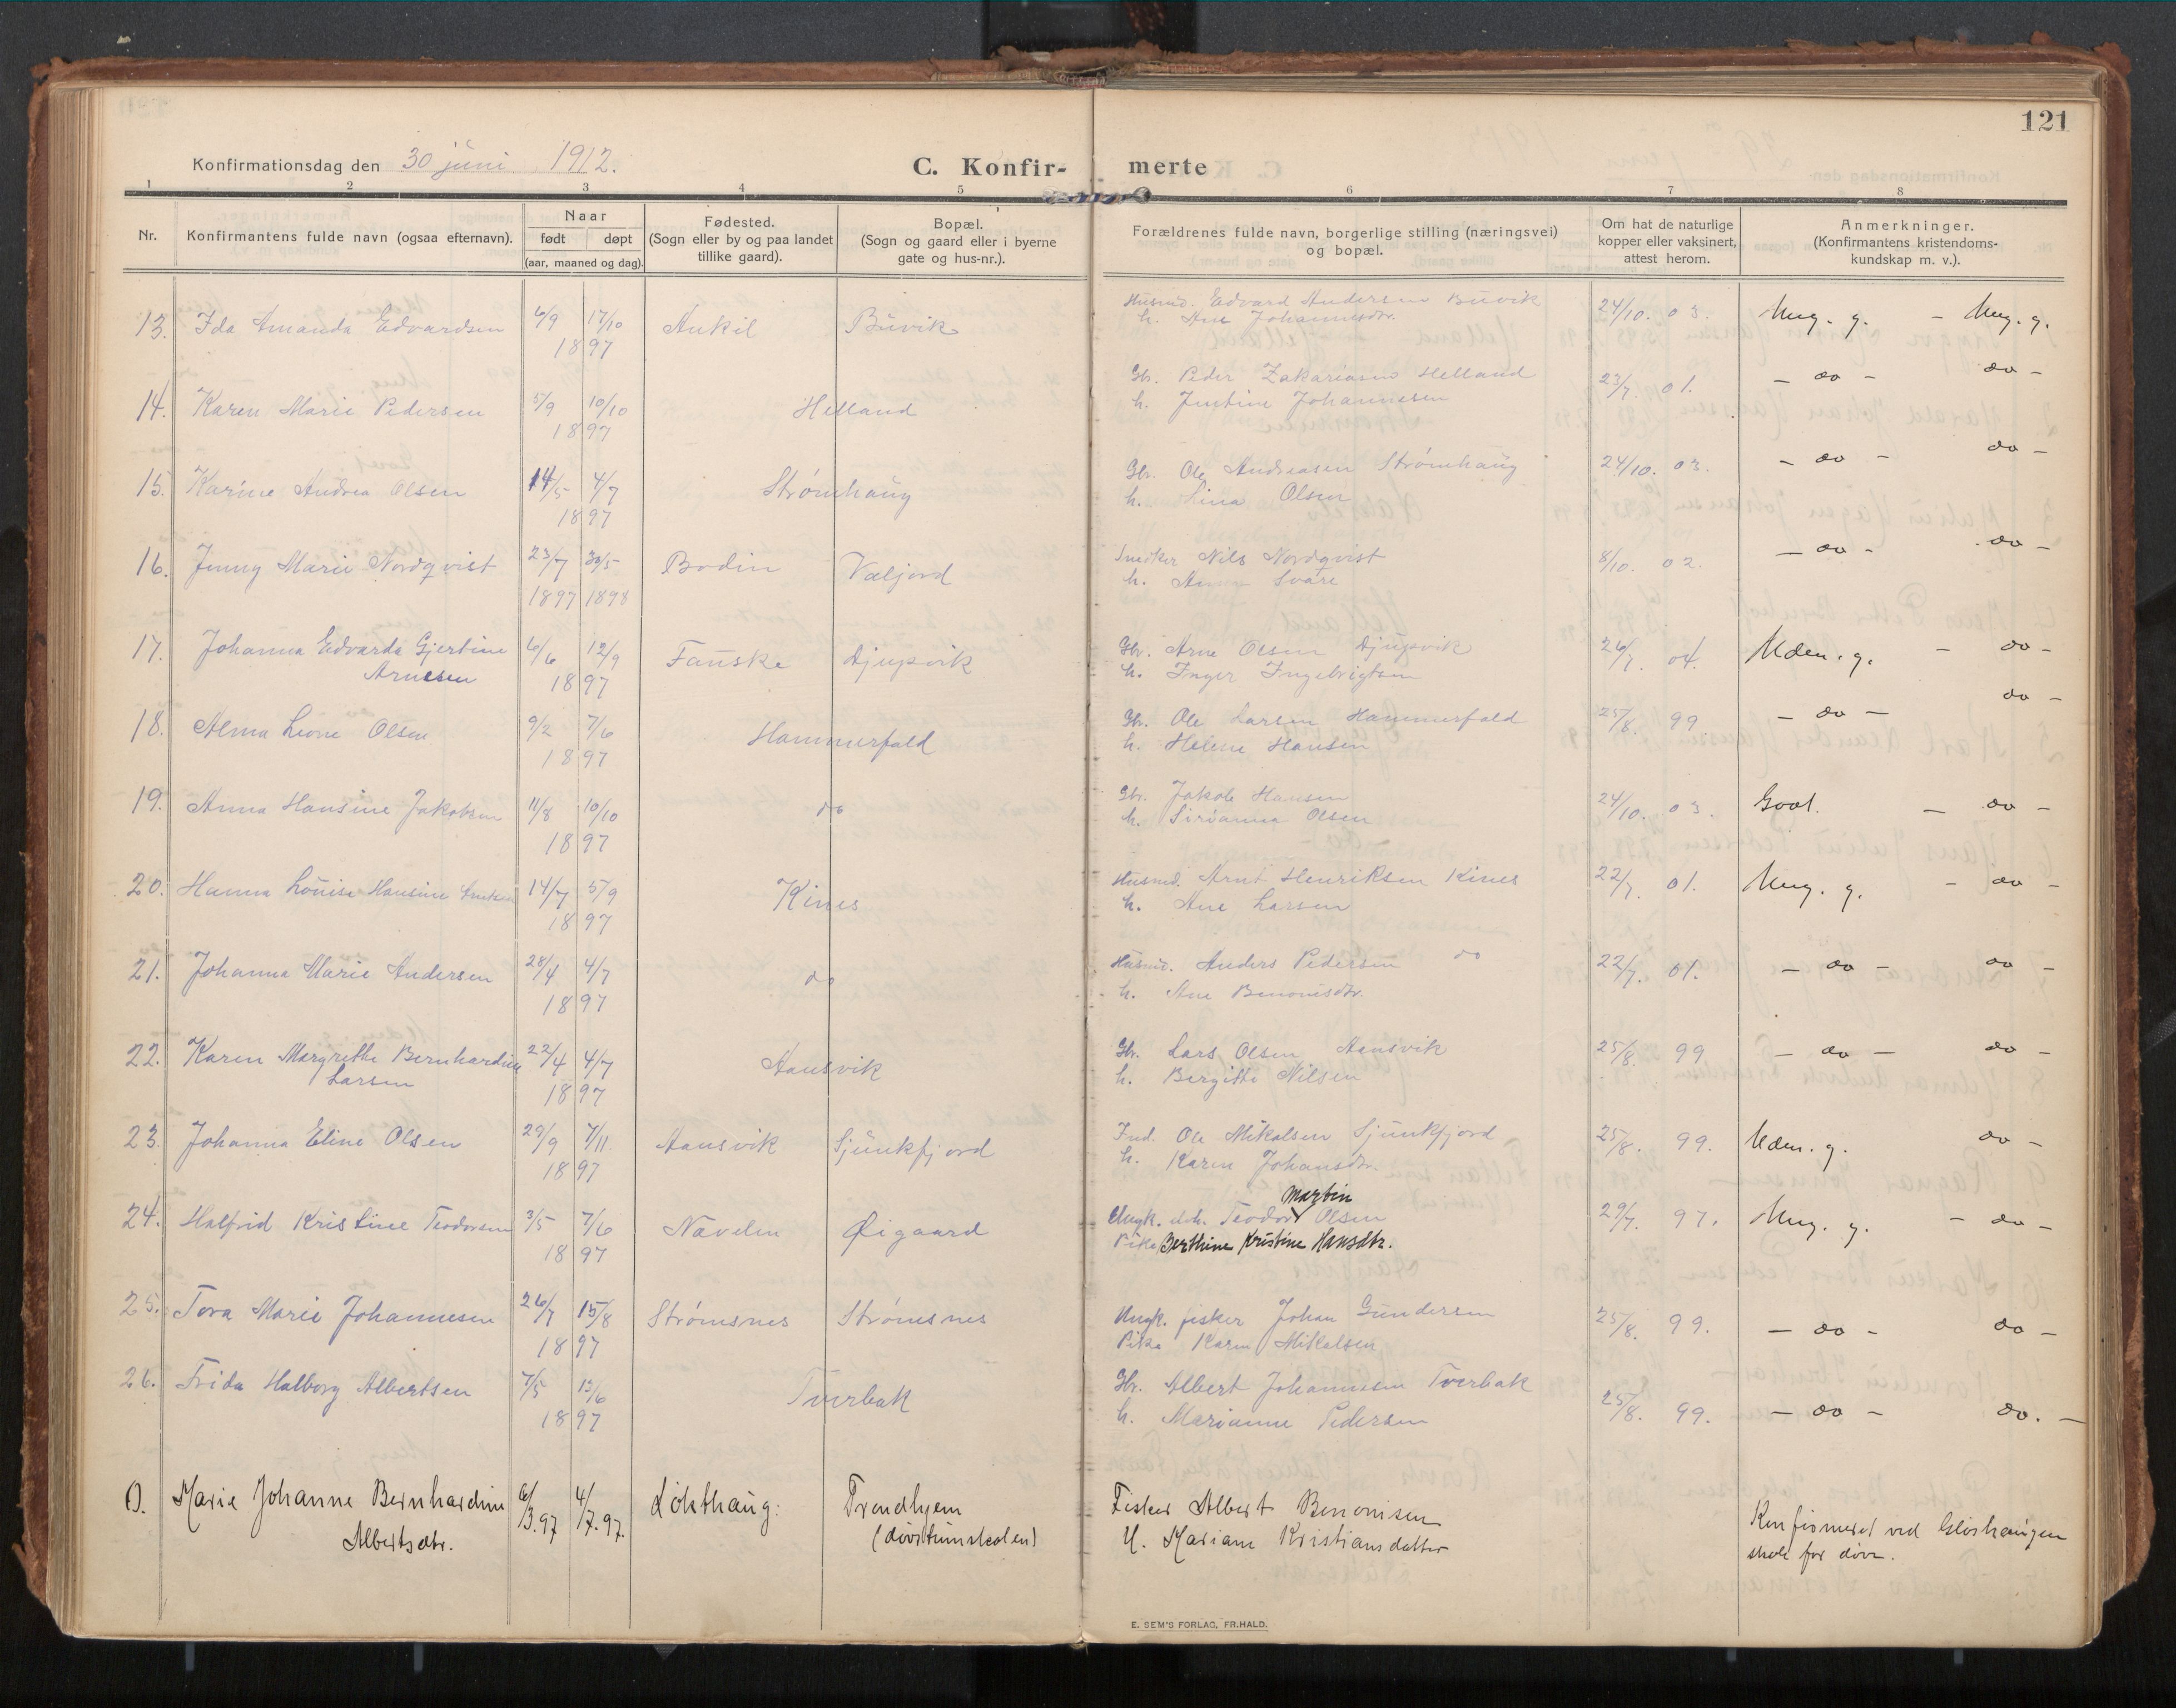 121
Konfirmationsdag den 30 juni 1912.
C. Konfir- merte
1 2 3 4 5 6 7 8
Nr.
Konfirmantens fulde navn (ogsaa efternavn).
Naar
født døpt
(aar, maaned og dag).
Fødested.
(Sogn eller by og paa landet
tillike gaard).
Bopæl.
(Sogn og gaard eller i byerne
gate og hus-nr.).
Forældrenes fulde navn, borgerlige stilling (næringsvei)
og bopæl.
Om hat de naturlige
kopper eller vaksinert,
attest herom.
Anmerkninger.
(Konfirmantens kristendoms-
kundskap m. v.).
Husmd. Edvard Andersen Buvik
13. Ida Amanda Edvardsen 6/9 17/10 Ankil Buvik h. Ane Johannesdtr. 24/10. 03. Meg. g. - Meg. g.
1897
Gbr. Peder Zakariasen Helland
14. Karen Marie Pedersen 5/9 10/10 Helland h. Justine Johannesen 23/7. 01. - do - do -
1897
Gbr. Ole Andreasen Strømhaug
15. Karine Andrea Olsen 14/5 4/7 Strømhaug h. Lina Olsen 24/10. 03. - do - do -
1897
Snedker Nils Nordqvist
16. Jenny Marie Nordqvist 23/7 30/5 Bodin Valjord h. Anna Svare 8/10. 02. - do - do -
1897 1898
17. Johanna Edvarda Gjertine 6/6 12/9 Fauske Djupvik Gbr. Arne Olsen Djupvik 26/7. 04. Uden. g. - do -
Arnesen 1897 h. Inger Ingebrigtsen
18. Alma Leone Olsen 9/2 7/6 Hammerfald Gbr. Ole Larsen Hammerfald 25/8. 99. - do - do -
1897 h. Helene Hansen
19. Anna Hansine Jakobsen 11/8 10/10 do Gbr. Jakob Hansen 24/10. 03. Godt. - do -
1897 h. Sirianna Olsen
20. Hanna Louise Hansine 14/7 5/9 Kines Husmd. Arnt Henriksen Kines 22/7. 01. Meg. g. - do -
1897 h. Ane Larsen
21. Johanna Marie Andersen 28/4 4/7 do Husmd. Anders Pedersen do 22/7. 01. - do - do -
1897 h. Ane Benonisdtr.
22. Karen Margrethe Bernhardine 22/4 4/7 Aansvik Gbr. Lars Olsen Aansvik 25/8. 99 - do - do -
Larsen 1897 h. Bergitte Nilsen
23. Johanna Eline Olsen 29/9 7/11. Aansvik Sjunkfjord Ind. Ole Mikalsen Sjunkfjord 25/8. 99. Uden. g. do -
1897 h. Karen Johansdtr.
Martin
24. Halfrid Kristine Teodorsen 3/5 7/6 Navelsn Øigaard Ungk. Teodor Olsen 29/7. 97. Meg. g. - do -
1897 Pike Berthine Kristine Hansdtr.
25. Tora Marie Johannesen 26/7 15/8 Strømsnes Strømsnes Ungk. fisker Johan Gundersen 25/8. 99. - do - do -
1897 Pike Karen Mikalsen
26. Frida Halborg Albertsen 7/5 13/6 Tverbak Gbr. Albert Johannesen Tverbak 25/8. 99. - do - do. -
1897 h. Marianne Pedersen
0. Marie Johanne Bernhardine 6/3.97 4/7.97. Løkthaug: Trondhjem Fisker Albert Benonisen Konfirmeret ved Gløshaugen
Albertsdtr. (døvstumskolen) H. Mariane Kristiansdatter skole for døve.
E. SEM'S FORLAG, FR.HALD.